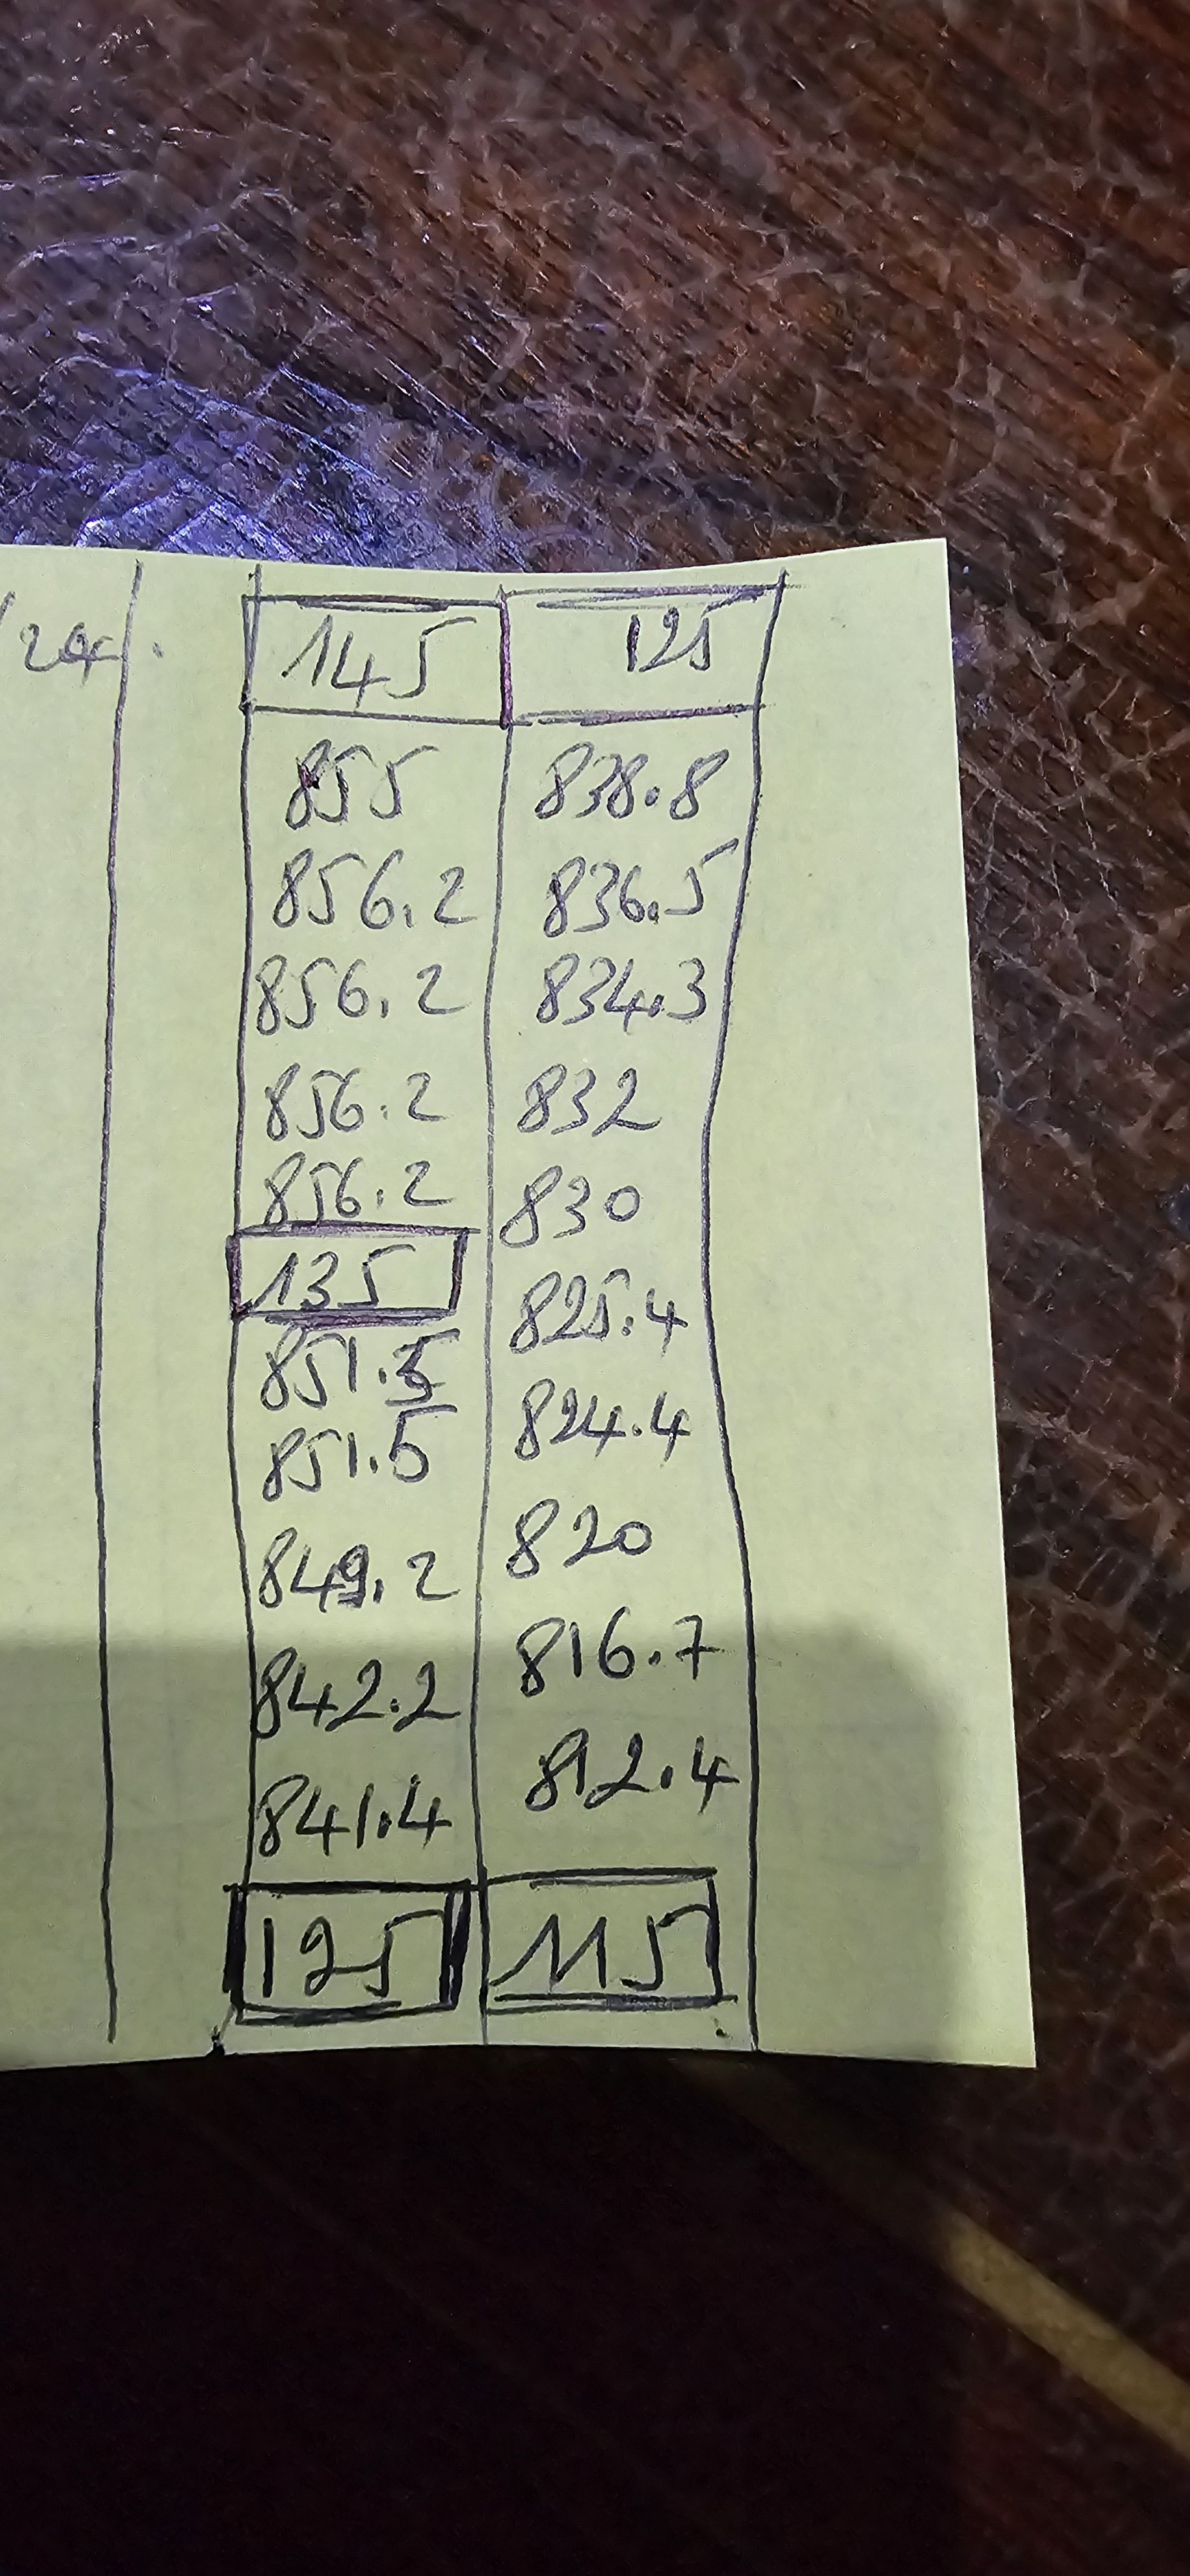 145 125
855 838.8
856.2 836.5
856.2 834.3
856.2 832
856.2 830
135
851.5 825.4
851.5 824.4
849.2 820
842.2 816.7
841.4 812.4
125 115